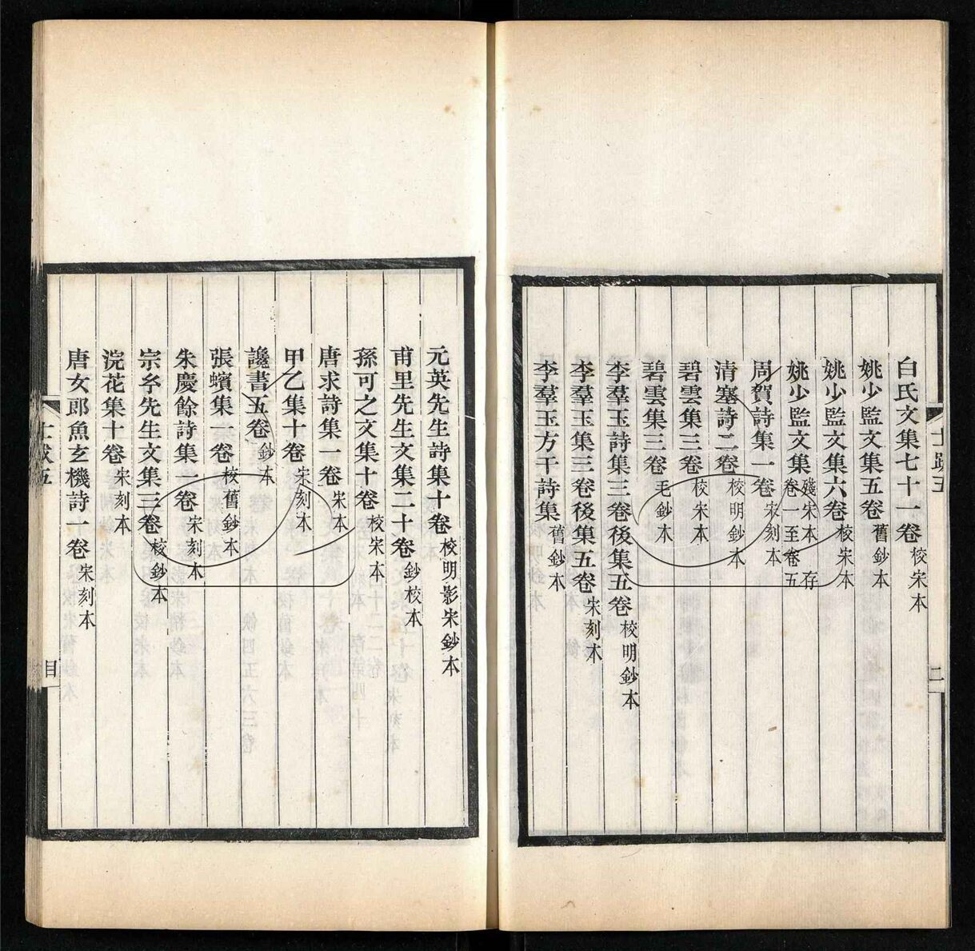 白氏文集七十一卷校宋本
姚少監文集五卷舊鈔本
姚少監文集六卷校宋本
姚少監文集殘宋本存卷一至卷五
周賀詩集一卷宋刻本
清塞詩二卷校明鈔本
碧雲集三卷校宋本
碧雲集三卷毛鈔本
李羣玉詩集三卷後集五卷校明鈔本
李羣玉集三卷後集五卷宋刻本
李羣玉方干詩集舊鈔本
二
元英先生詩集十卷校明影宋鈔本
甫里先生文集二十卷鈔校本
孫可之文集十卷校宋本
唐求詩集一卷宋本
甲乙集十卷宋刻本
讒書五卷鈔本
張蠙集一卷校舊鈔本
朱慶餘詩集一卷宋刻本
宗玄先生文集三卷校鈔本
浣花集十卷宋刻本
唐女郎魚玄機詩一卷宋刻本
目